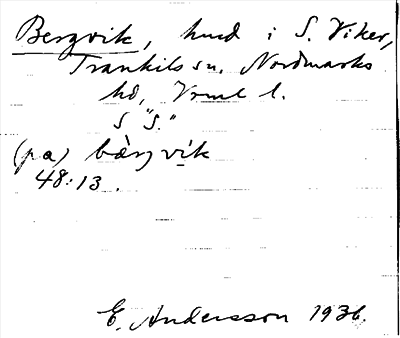 Bergvik, hmd i S. Viker,
Trankils sn. Nordmarks
hd, Vrml l.
S "S."
(pa) bàrjvik
48:13.
E. Andersson 1936.